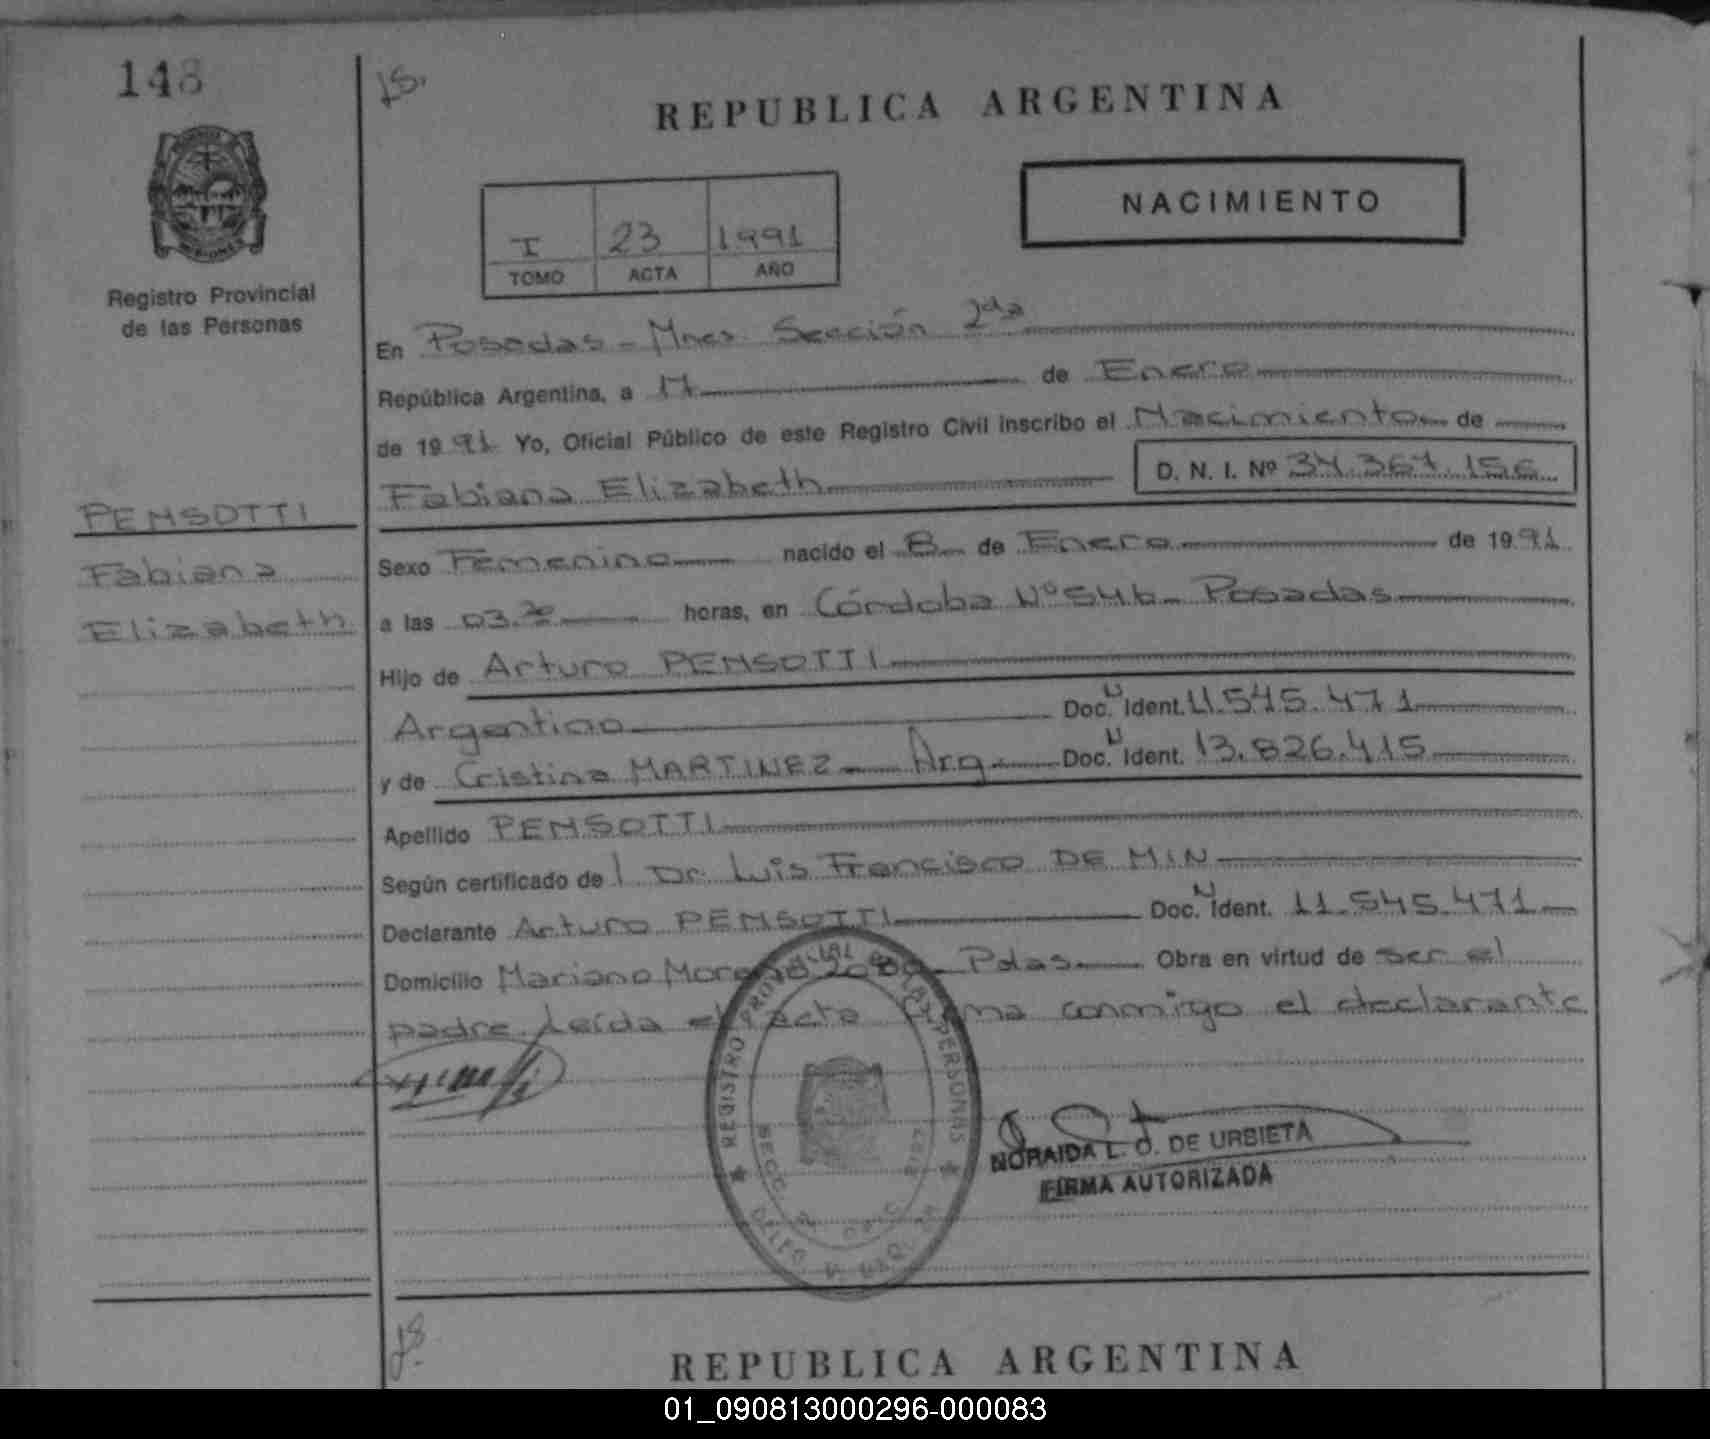 148
REPUBLICA ARGENTINA
NACIMIENTO
I 23 1991
TOMO ACTA AÑO
Registro Provincial
de las Personas
En Posadas - Mnes. Sección 2da
República Argentina, a 17 de Enero
de 1991 Yo, Oficial Público de este Registro Civil inscribo el Nacimiento de
Fabiana Elizabeth D. N. I. Nº 34.367.156
PENSOTTI
Fabiana
Elizabeth
Sexo Femenino nacido el 8 de Enero de 1991
a las 03.20 horas, en Córdoba Nº 546 - Posadas
Hijo de Arturo PENSOTTI
Argentino Doc. N Ident. 11.545.471
y de Cristina MARTINEZ Arg. Doc. N Ident. 13.826.415
Apellido PENSOTTI
Según certificado del Dr. Luis Francisco DE MIN
Declarante Arturo PENSOTTI Doc. N Ident. 11.545.471
Domicilio Mariano Moreno Pdas. Obra en virtud de ser el
padre. Leída el acta firma conmigo el declarante
REGISTRO PROVINCIAL DE LAS PERSONAS
SECC.
NORAIDA L. O. DE URBIETA
FIRMA AUTORIZADA
REPUBLICA ARGENTINA
01_090813000296-000083